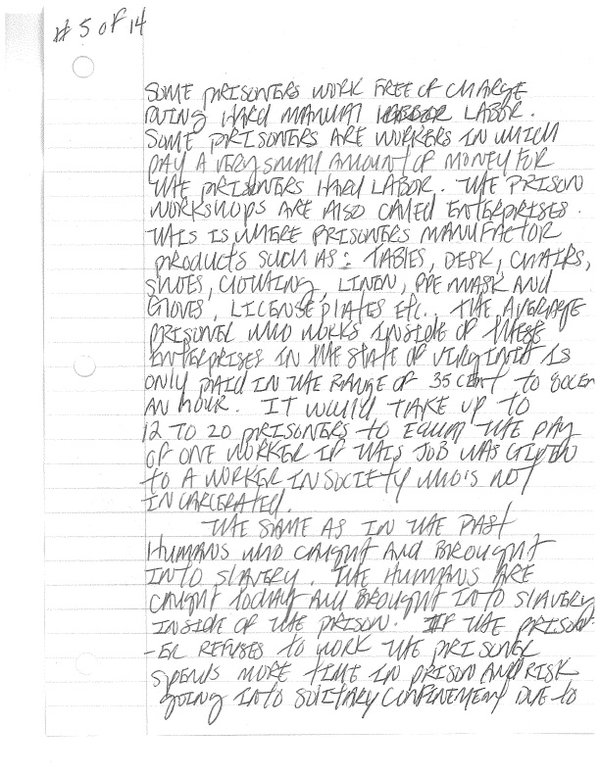 # 5 OF 14
SOME PRISONERS WORK FREE OF CHARGE
DOING HARD MANUAL LABOR LABOR.
SOME PRISONERS ARE WORKERS IN WHICH
PAY A VERY SMALL AMOUNT OF MONEY FOR
THE PRISONERS HARD LABOR. THE PRISON
WORKSHOPS ARE ALSO CALLED ENTERPRISES.
THIS IS WHERE PRISONERS MANUFACTOR
PRODUCTS SUCH AS: TABLES, DESK, CHAIRS,
SHOES, CLOTHING, LINEN, PPE MASK AND
GLOVES, LICENSE PLATES ETC.. THE AVERAGE
PRISONER WHO WORKS INSIDE OF THESE
ENTERPRISES IN THE STATE OF VIRGINIA IS
ONLY PAID IN THE RANGE OF 35 CENT TO 80CEN
AN HOUR. IT WOULD TAKE UP TO
12 TO 20 PRISONERS TO EQUAL THE PAY
OF ONE WORKER IF THIS JOB WAS GIVEN
TO A WORKER IN SOCIETY WHO'S NOT
INCARCERATED.
THE SAME AS IN THE PAST
HUMANS WHO CAUGHT AND BROUGHT
INTO SLAVERY. THE HUMANS ARE
CAUGHT TODAY AND BROUGHT INTO SLAVERY
INSIDE OF THE PRISON. IF THE PRISON-
-ER REFUSES TO WORK THE PRISONER
SPENDS MORE TIME IN PRISON AND RISK
GOING INTO SOLITARY CONFINEMENT DUE TO